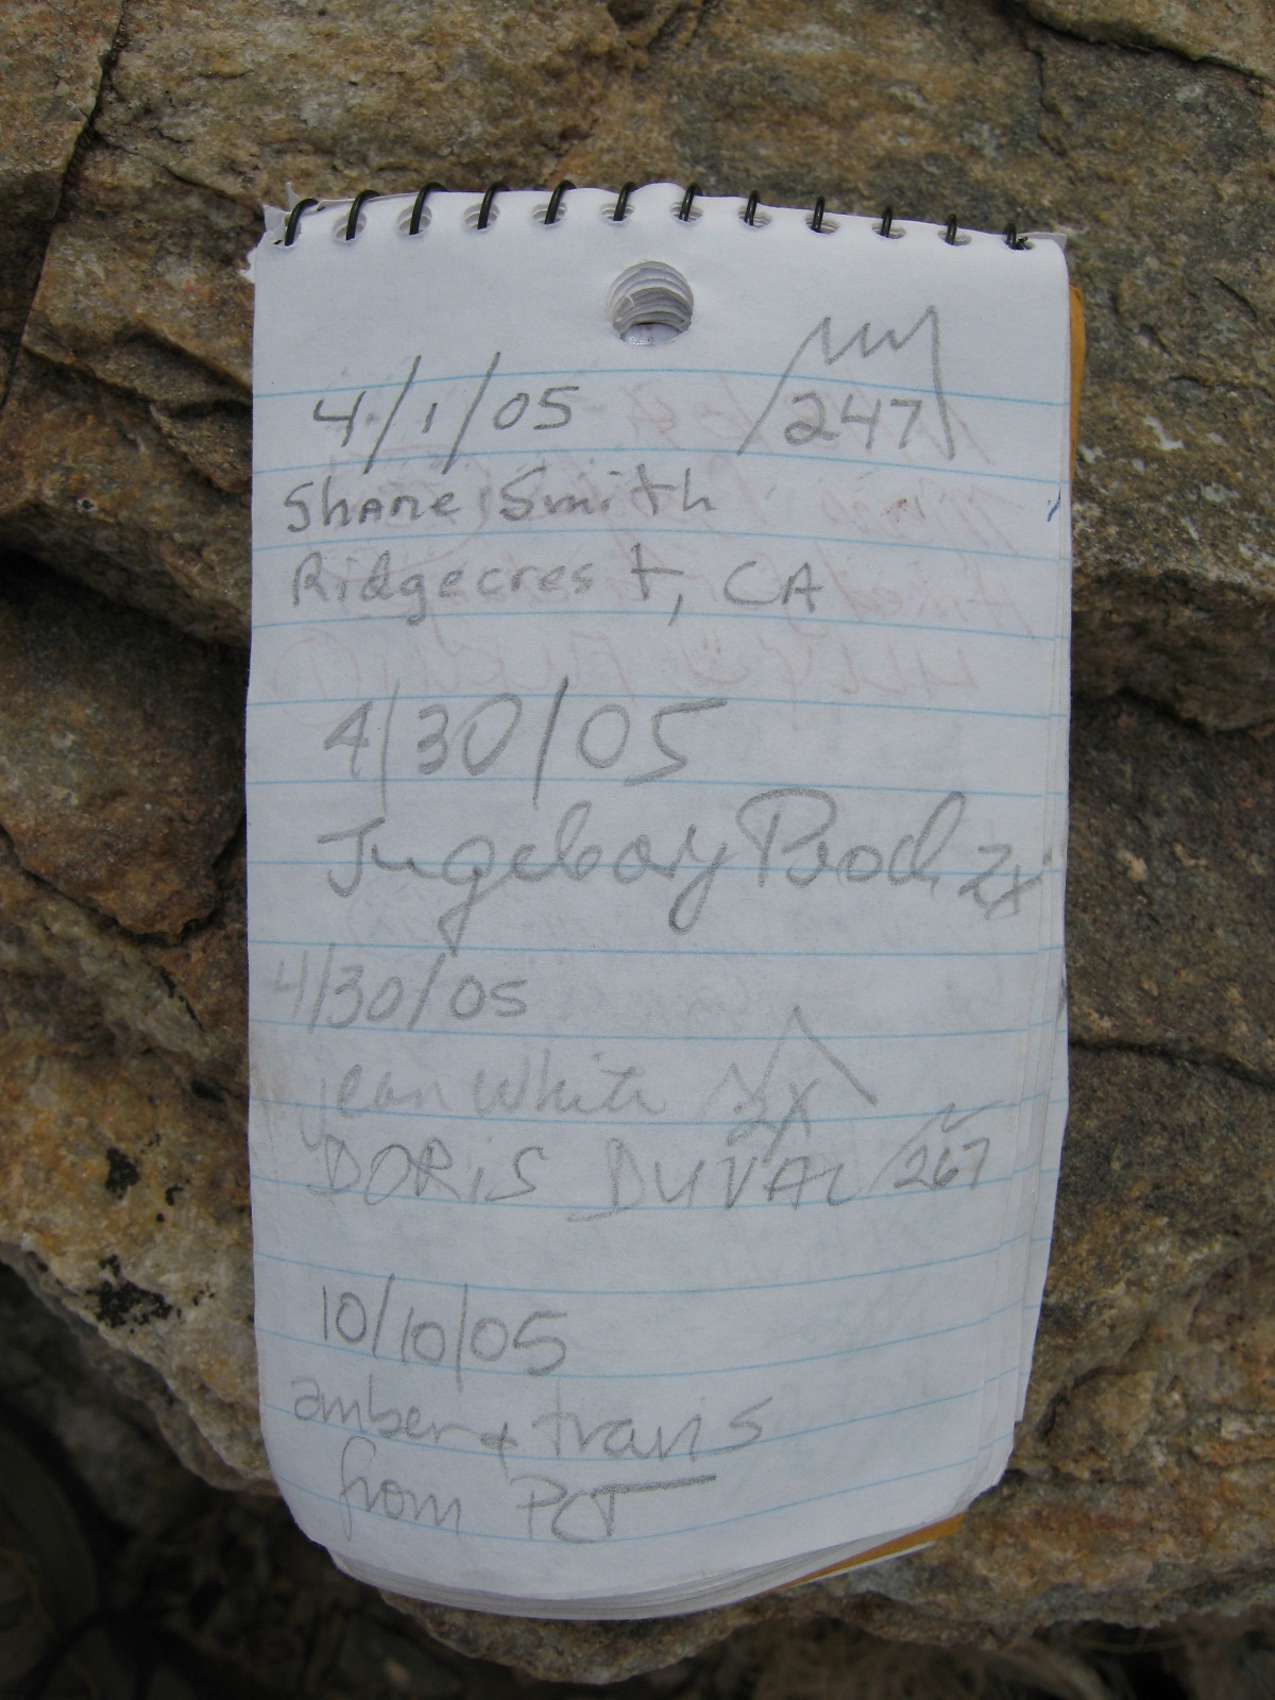 4/1/05 247
Shane Smith
Ridgecrest, CA
4/30/05
Ingeborg Prochazka 2x
4/30/05
jean White 2x
DORIS DUVAL 267
10/10/05
amber + travis
from PCT